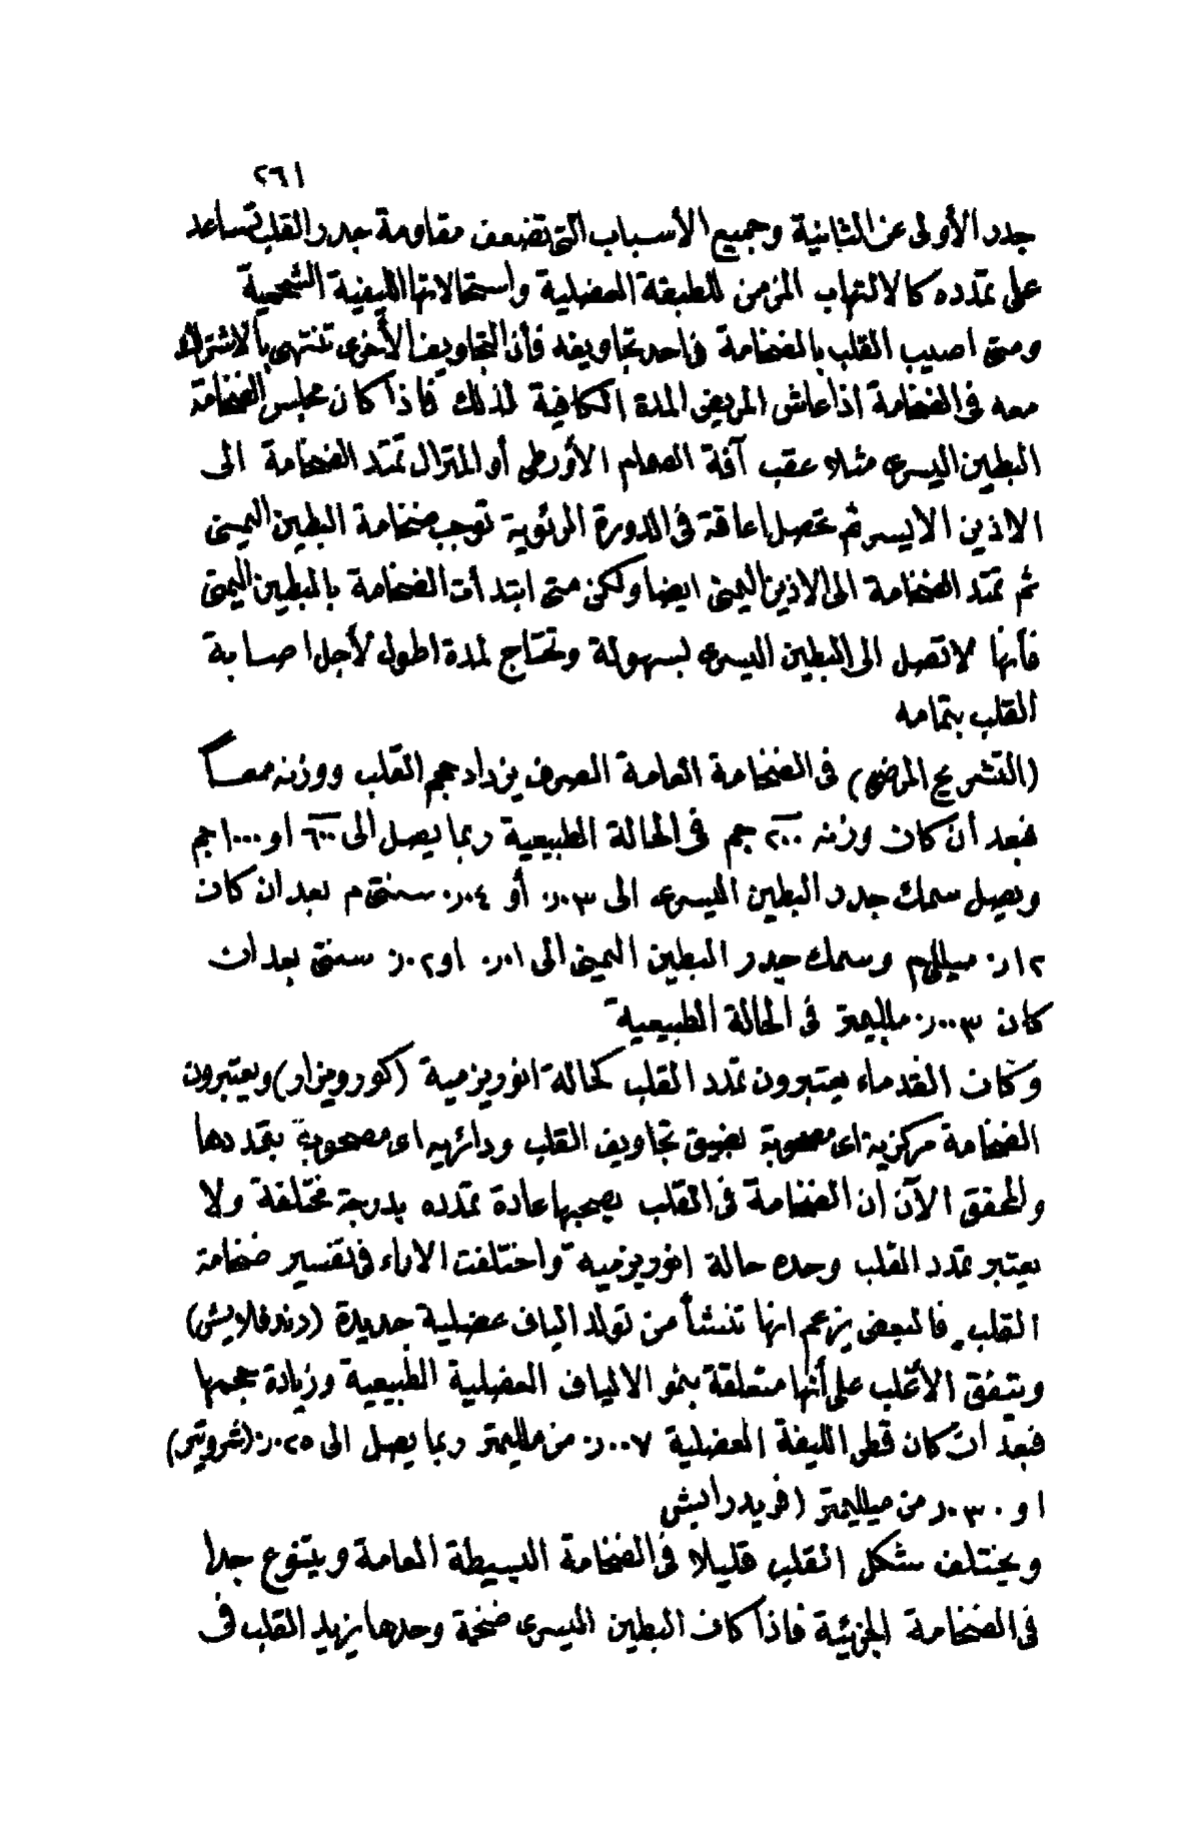 ٢٦١
جدر الأولى عن الثانية وجميع الأسباب التى تضعف مقاومة جدر القلب تساعد
على تمدده كالالتهاب المزمن للطبقة العضلية واستحالاتها الليفية الشحمية
ومتى اصيب القلب بالضخامة فى احد تجاويفه فأن التجاويف الأخرى تنتهى بالاشتراك
معه فى الضخامة اذا عاش المريض المدة الكافية لذلك فاذا كان مجلس الضخامة
البطين اليسرى مثلا عقب آفة الصمام الأورطى أو المترال تمتد الضخامة الى
الاذين الايسر ثم تحصل اعاقة فى الدورة الرئوية توجب ضخامة البطين اليمنى
ثم تمتد الضخامة الى الاذين اليمنى ايضا ولكن متى ابتدأت الضخامة بالبطين اليمنى
فأنها لا تصل الى البطين اليسرى بسهولة وتحتاج لمدة اطول لأجل اصابة
القلب بتمامه
(التشريح المرضى) فى الضخامة العامة الصرف يزداد حجم القلب ووزنه معا
فبعد أن كان وزنه ٢٠٠ جم فى الحالة الطبيعية ربما يصل الى ٦٠٠ او ١٠٠٠ جم
ويصل سمك جدر البطين اليسرى الى ٠٣ر٠ أو ٠٤ر٠ سنتى م بعد ان كان
١٢ر٠ ميللى م وسمك جدر البطين اليمنى الى ٠١ر٠ او ٠٢ر٠ سنتى بعد ان
كان ٠٠٣ر٠ ملليمتر فى الحالة الطبيعية
وكان القدماء يعتبرون تمدد القلب كحالة انوريزمية (كورويزار) ويعتبرون
الضخامة مركزية اى مصحوبة بضيق تجاويف القلب ودائريه اى مصحوبة بتمددها
والمحقق الآن أن الضخامة فى القلب يصحبها عادة تمدده بدرجة مختلفة ولا
يعتبر تمدد القلب وحده حالة انوريزميه واختلفت الاراء فى تفسير ضخامة
القلب فالبعض يزعم انها تنشأ من تولد الياف عضلية جديدة (دندفلايش)
ويتفق الأغلب على أنها متعلقة بنمو الالياف العضلية الطبيعية وزيادة حجمها
فبعد ان كان قطر الليفة العضلية ٠٠٧ر٠ من ملليمتر ربما يصل الى ٠٢٥ر٠ (شروتتر)
او ٠٣٠ر٠ من ميلليمتر (فريدرايش
ويختلف شكل القلب قليلا فى الضخامة البسيطة العامة ويتنوع جدا
فى الضخامة الجزئية فاذا كان البطين اليسرى ضخمة وحدها يزيد القلب فى